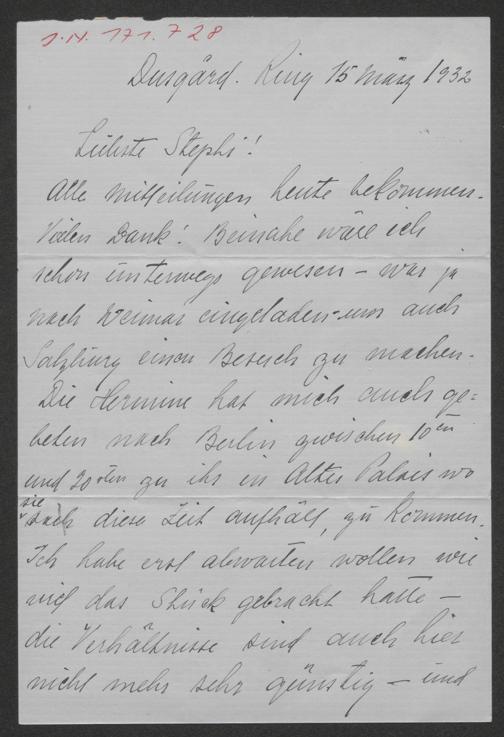 I.N. 171.728
Dusgård. Ring 15 März 1932
Liebste Stephi!
Alle Mitteilungen heute bekommen.
Vielen Dank! Beinahe wäre ich
schon unterwegs gewesen – war ja
nach Weimar eingeladen – um auch
Salzburg einen Besuch zu machen.
Die Hermine hat mich auch ge=
beten nach Berlin zwischen 10en
und 20sten zu ihr in Altes Palais wo
sie sich diese Zeit aufhält, zu kommen.
Ich habe erst abwarten wollen wie
viel das Stück gebracht hatte –
die Verhältnisse sind auch hier
nicht mehr sehr günstig – und